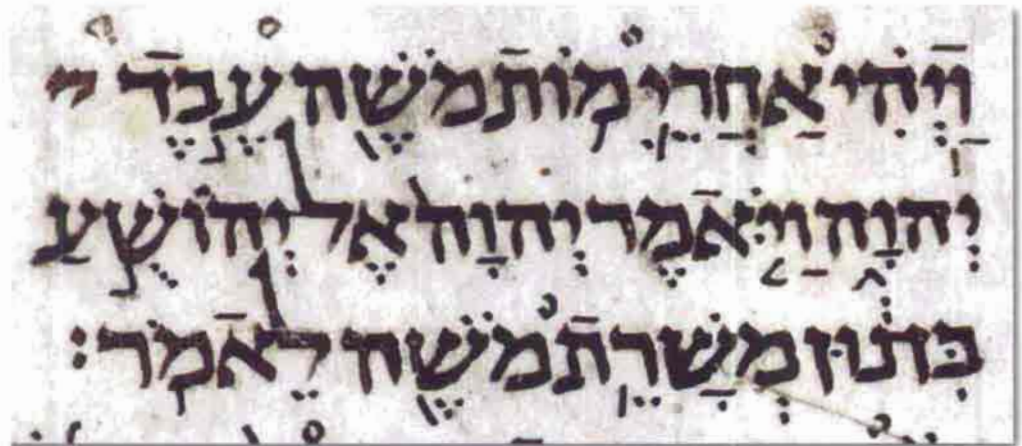 וַיְהִי אַחֲרֵי מוֹת מֹשֶׁה עֶבֶד יי
יְהוָה וַיֹּאמֶר יְהוָה אֶל יְהוֹשֻׁעַ
בִּן נוּן מְשָׁרֵת מֹשֶׁה לֵאמֹר׃